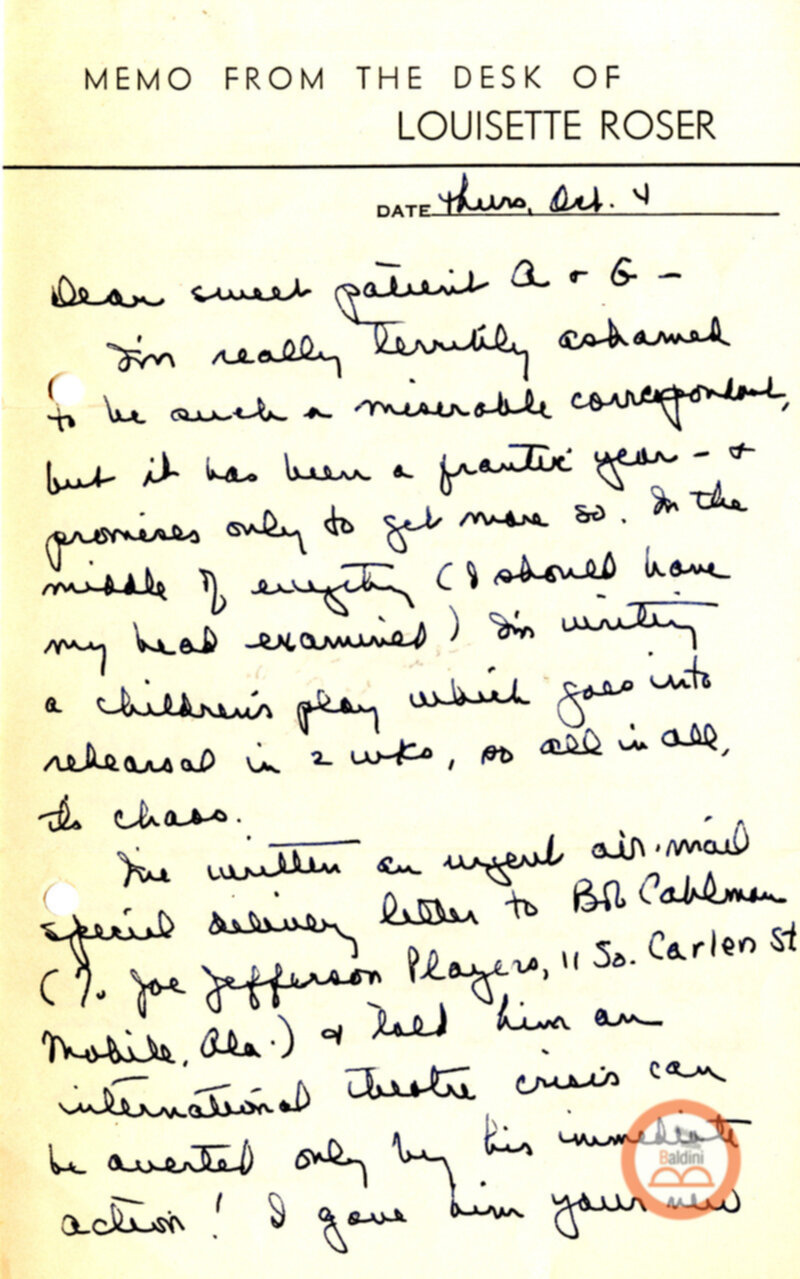 MEMO FROM THE DESK OF
LOUISETTE ROSER
DATE Thurs, Oct. 4
Dear sweet patient A + G –
I'm really terribly ashamed
to be such a miserable correspondent,
but it has been a frantic year – +
promises only to get more so. In the
middle of everything (I should have
my head examined) I'm writing
a children's play which goes into
rehearsal in 2 wks, so all in all,
it's chaos.
I've written an urgent air-mail
special delivery letter to Bob Cahlman
(℅ Joe Jefferson Players, 11 So. Carlen St
Mobile, Ala.) + told him an
international theatre crisis can
be averted only by his immediate
action! I gave him your new
Baldini